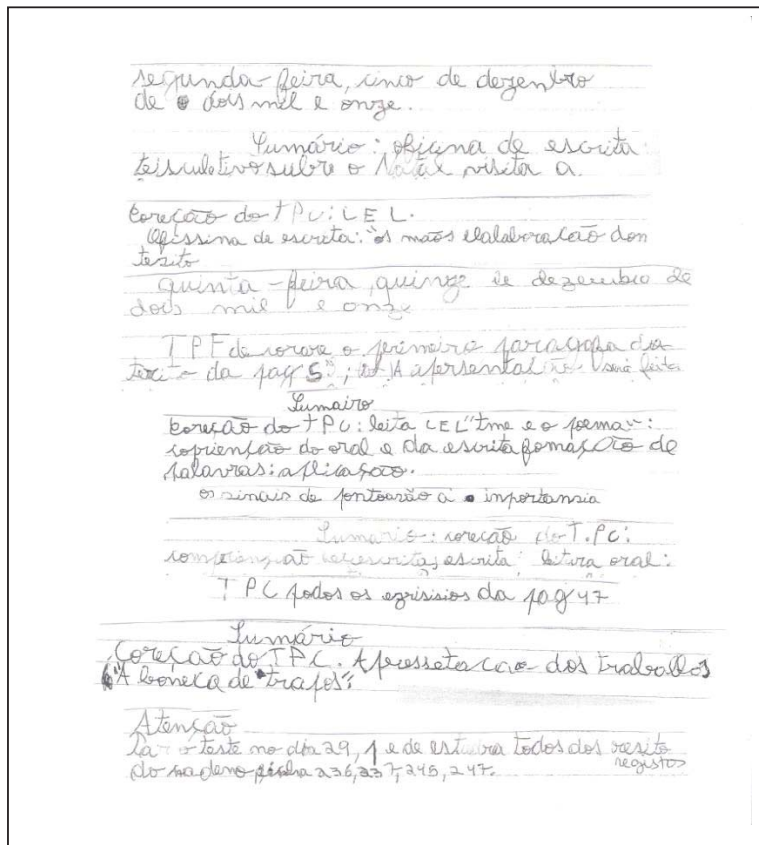 segunda-feira, cinco de dezenbro
de dois mil e onze.
Sumário: oficina de escrita:
subre o Natal visita a
Coreção do TPC: LEL.
Ofissina de escreta: "os maos elalaboracão don
tesito
quinta-feira, quinze de dezembro de
dois mil e onze
TPF de corare o primeiro paragafa do
da pag 5"; A apersentai será feita
Sumairo
Coreção do TPC: leita LEL "tme e o poema":
coprienção do oral e da escrita fomação de
palavras: aplicação.
os sinais de pontoasão a inportansia
Sumario: coreção do T.PC:
escrita: litura oral:
TPC podos os egrisisios da pag 47
Sumário
Coreção do TPC. Apresseta cao dos trabalhos
"A boneca de trapos":
Atenção
teste no dia 29, e de estudra todos dos resito
registos
do cadeno 236, 237, 245, 247.